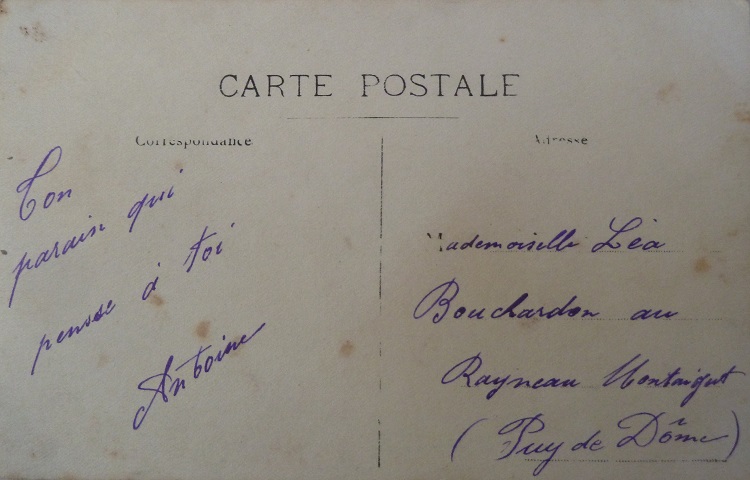 CARTE POSTALE
Correspondance
Adresse
Ton
parain qui
pense à toi
Antoine
Mademoiselle Léa
Bouchardon au
Rayneau Montaigut
(Puy de Dôme)